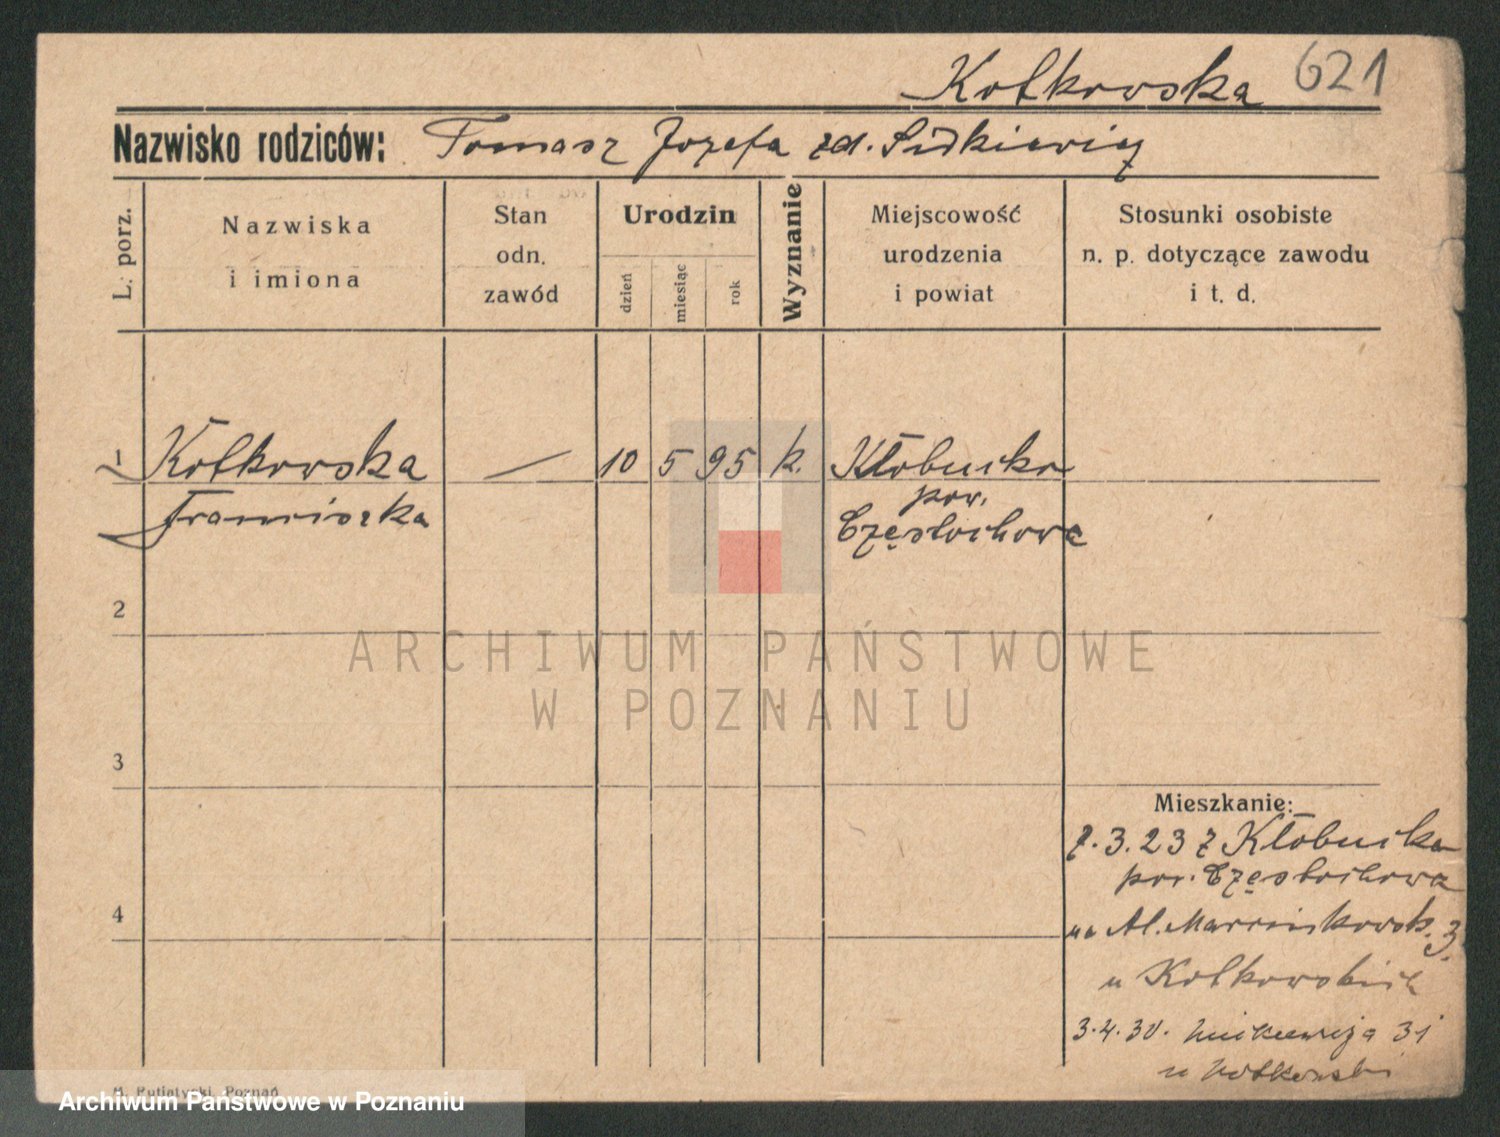 Kotkowska 621
Nazwisko rodziców: Tomasz Józefa zd. Sidkiewicz
L. porz.
Nazwiska i imiona
Stan odn. zawód
Urodzin
dzień
miesiąc
rok
Wyznanie
Miejscowość urodzenia i powiat
Stosunki osobiste n. p. dotyczące zawodu i t. d.
1 Kotkowska — 10 5 95 k. Kłobucko
Franciszka pow.
Częstochowa
2
ARCHIWUM PAŃSTWOWE
W POZNANIU
3
Mieszkanie:
7.3.23 z Kłobucka
pow. Częstochowa
4
na Al. Marcinkowsk. 3.
u Kotkowskich
3.4.30. Mickiewicza 31
u Kotkowski
Poznań
Archiwum Państwowe w Poznaniu